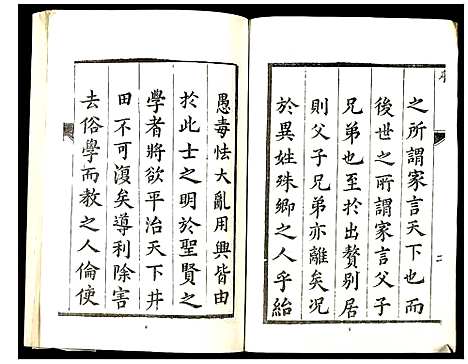 之所謂家言天下也而
後世之所謂家言父子
兄弟也至於出贅別居
則父子兄弟亦離矣況
於異姓殊鄉之人乎紿
二
愚毒怯大亂用興皆由
於此士之明於聖賢之
學者將欲平治天下井
田不可復矣導利除害
去俗學而教之人倫使